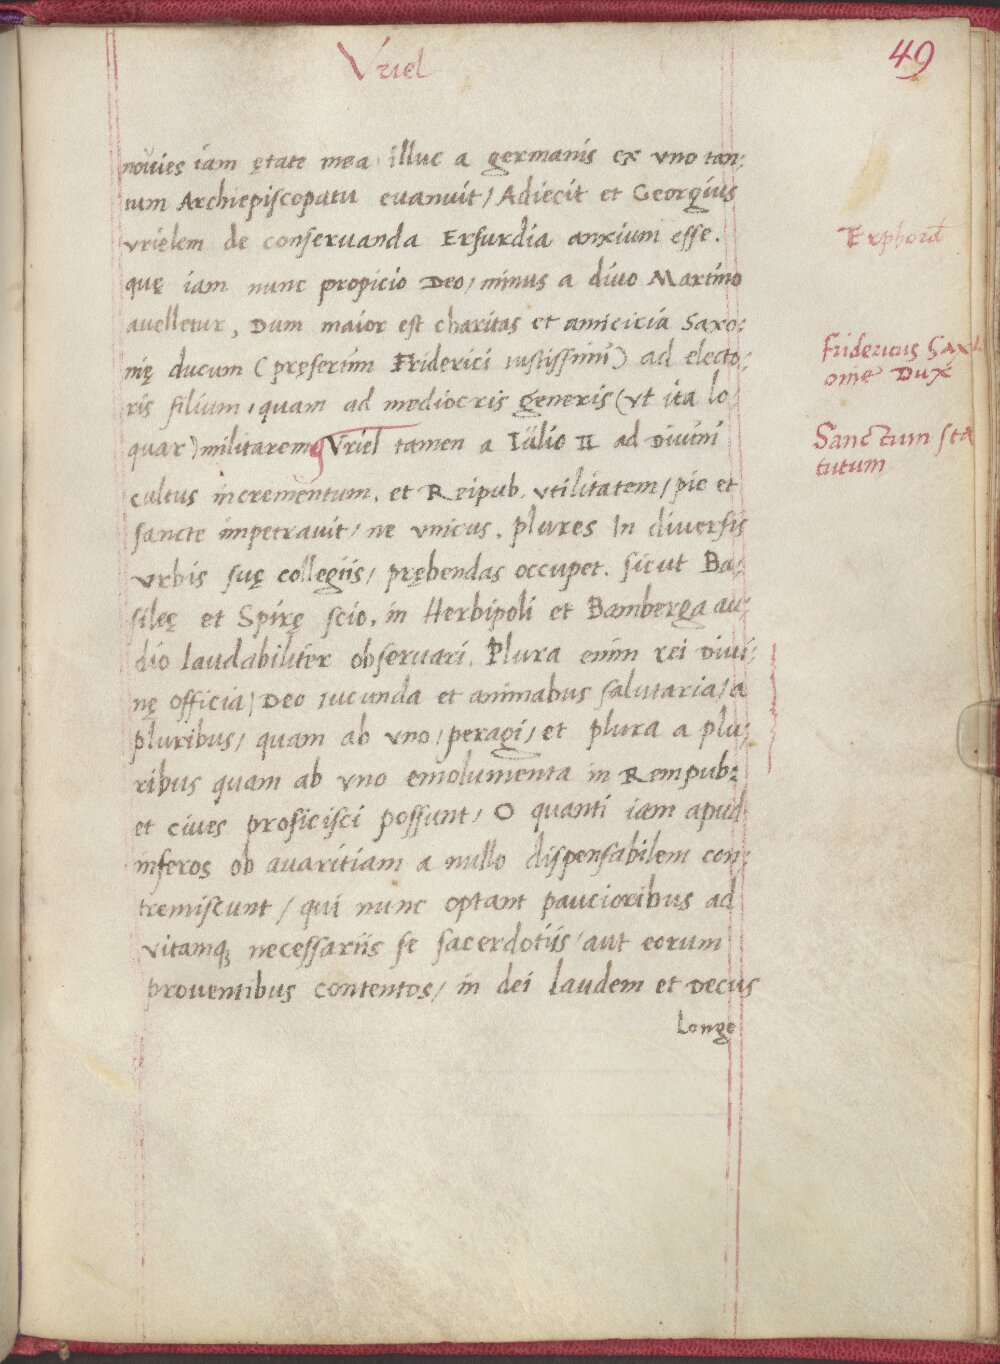 Vriel
49
nouies iam ętate mea illuc a germanis ex vno tan:
tum Archiepiscopatu euanuit / Adiecit et Georgius
vrielem de conseruanda Erfurdia anxium esse.
quę iam nunc propicio Deo / minus a diuo Martino
auelletur, Dum maior est charitas et amicicia Saxo:
nię ducum (pręsertim Friderici iustissimi) ad electo:
ris filium, quam ad mediocris generis (vt ita lo
quar) militarem Vriel tamen a Iulio II ad Diuini
cultus incrementum, et Reipub. vtilitatem / pie et
sancte impetrauit / ne vnicus, plures In diuersis
vrbis suę collegiis / prębendas occupet. sicut Ba:
sileę et Spirę scio, in Herbipoli et Bamberga au:
dio laudabiliter obseruari. Plura enim rei Diui:
nę officia / Deo iucunda et animabus salutaria / a
pluribus / quam ab vno / peragi / et plura a plu:
ribus quam ab vno emolumenta in Rempub:
et ciues proficisci possunt / O quanti iam apud
inferos ob auaritiam a nullo dispensabilem con:
tremiscunt / qui nunc optant paucioribus ad
vitamq; necessariis se sacerdotiis / aut eorum
prouentibus contentos / in dei laudem et Decus
Longe
Erphord
Fridericus Sax
onie Dux
Sanctum sta
tutum